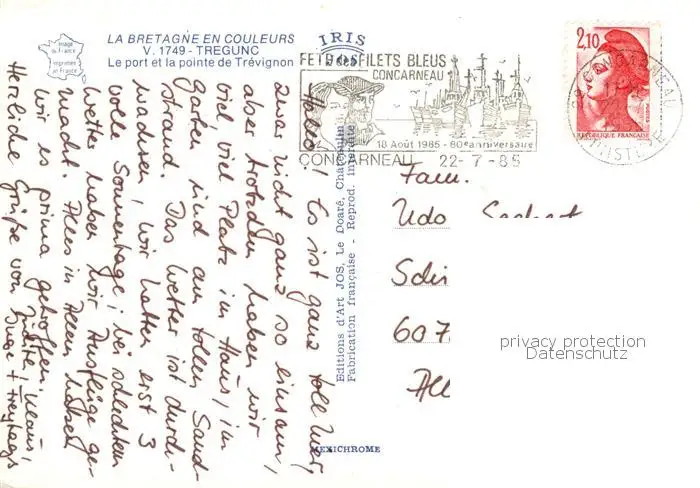 Image
de France
Imprimée
en France
LA BRETAGNE EN COULEURS
V. 1749 - TREGUNC
Le port et la pointe de Trévignon
IRIS
FETE DES FILETS BLEUS
CONCARNEAU
18 Août 1985 - 80e anniversaire
CONCARNEAU 22-7-85
2,10
REPUBLIQUE FRANÇAISE
POSTES
29 CONCARNEAU
FINISTERE
Hallo! Es ist ganz toll hier,
zwar nicht ganz so einsam,
aber trotzdem haben wir
viel viel Platz im Haus, im
Garten und am tollen Sand-
strand. Das Wetter ist durch-
wachsen, wir hatten erst 3
volle Sonnentage; bei schlechtem
Wetter haben wir Ausflüge ge-
macht. Alles in Allem haben
wir es prima getroffen.
Herzliche Grüße von
Klaus,
Inge + Freytags
Editions d'Art JOS, Le Doaré, Chateaulin
Fabrication française - Reprod. interdite
MEXICHROME
Fam.
Udo
607
privacy protection
Datenschutz